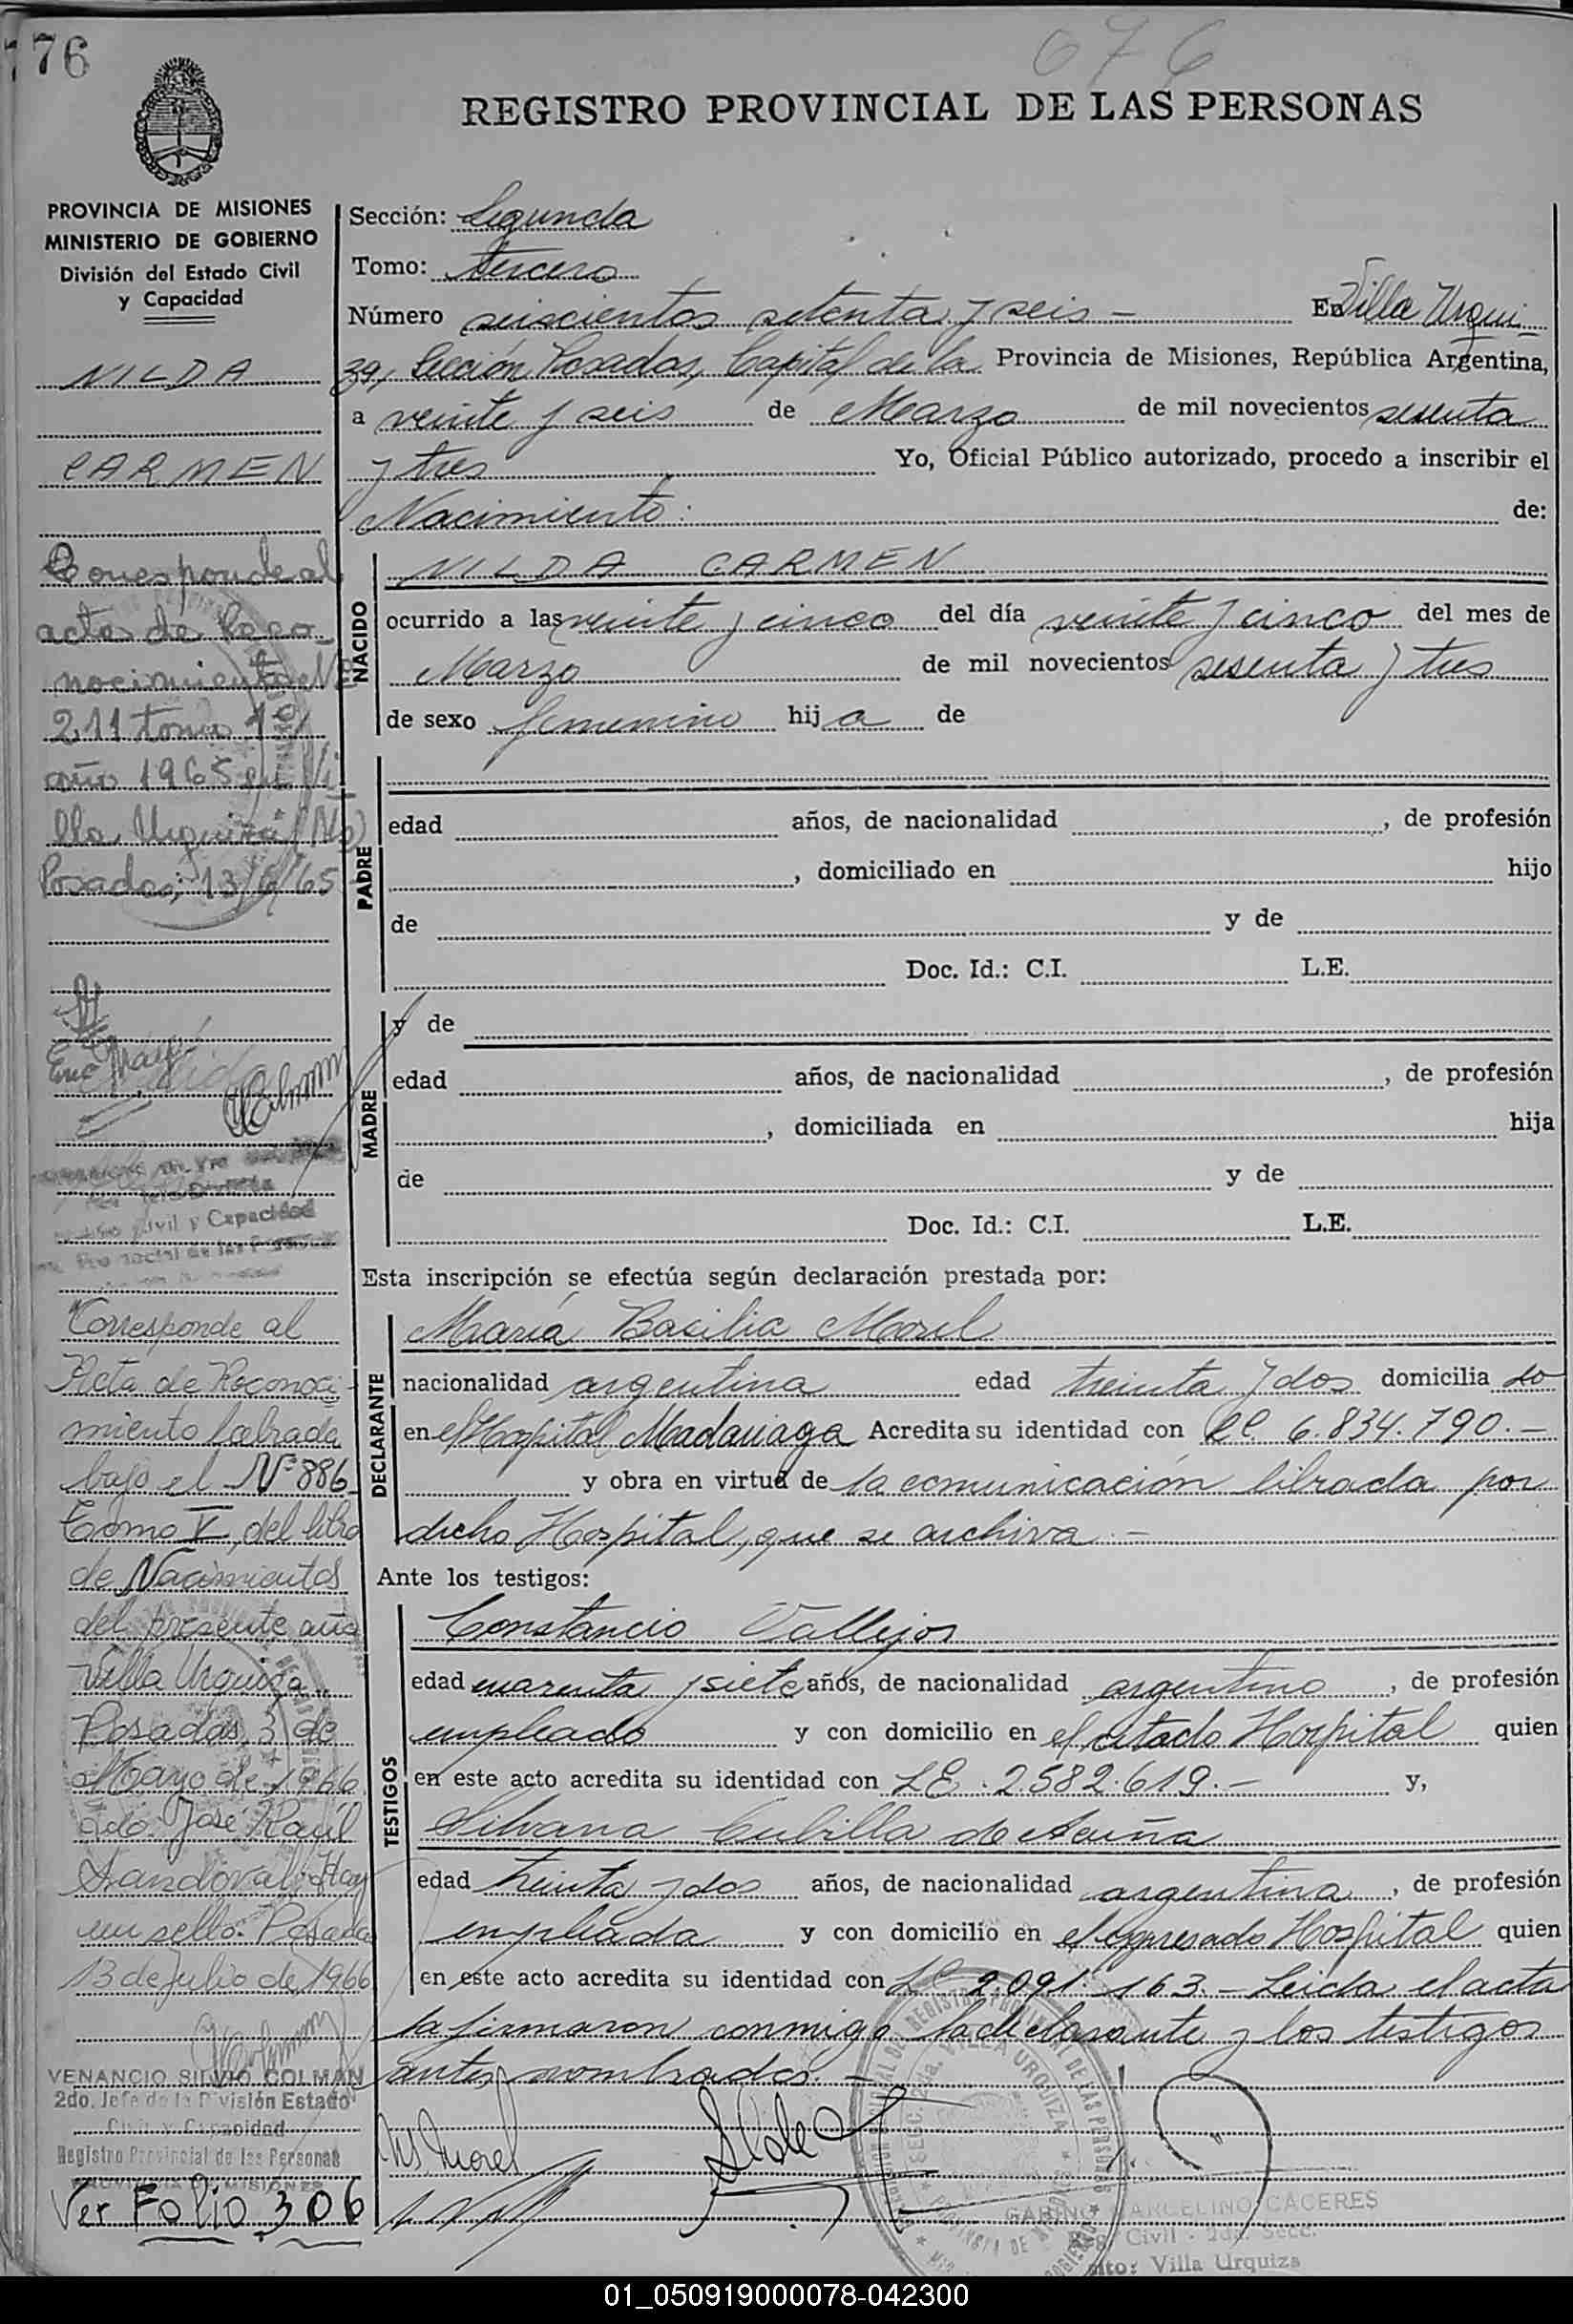 776
676
REGISTRO PROVINCIAL DE LAS PERSONAS
PROVINCIA DE MISIONES
MINISTERIO DE GOBIERNO
División del Estado Civil
y Capacidad
NILDA
CARMEN
Corresponde al
acta de Reco-
nocimiento Nº
211 tomo 1º
año 1965 en Vi-
lla Urquiza
Posadas, 13/6/65
Civil y Capacidad
Corresponde al
Acta de Reconoci-
miento labrada
bajo el Nº 886
Tomo V, del libro
de Nacimientos
del presente año
Villa Urquiza
Posadas, 3 de
Mayo de 1966
Fdo. José Raúl
Sandoval. Hay
un sello. Posadas
13 de Julio de 1966
VENANCIO SILVIO COLMAN
2do. Jefe de la División Estado
Civil y Capacidad
Registro Provincial de las Personas
PROVINCIA DE MISIONES
Ver Folio 306
Sección: Segunda
Tomo: tercero
Número seiscientos setenta y seis - En Villa Urqui-
za, Sección Posadas, Capital de la Provincia de Misiones, República Argentina,
a veinte y seis de Marzo de mil novecientos sesenta
y tres Yo, Oficial Público autorizado, procedo a inscribir el
Nacimiento: de:
NACIDO
NILDA CARMEN
ocurrido a las veinte y cinco del día veinte y cinco del mes de
Marzo de mil novecientos sesenta y tres
de sexo femenino hija de
PADRE
edad años, de nacionalidad , de profesión
, domiciliado en hijo
de y de
Doc. Id.: C.I. L.E.
MADRE
y de
edad años, de nacionalidad , de profesión
, domiciliada en hija
de y de
Doc. Id.: C.I. L.E.
Esta inscripción se efectúa según declaración prestada por:
DECLARANTE
María Basilia Morel
nacionalidad argentina edad treinta y dos domiciliado
en el Hospital Madariaga Acredita su identidad con LC 6.834.790.-
y obra en virtud de la comunicación librada por
dicho Hospital, que se archiva.-
Ante los testigos:
TESTIGOS
Constancio Vallejos
edad cuarenta y siete años, de nacionalidad argentino, de profesión
empleado y con domicilio en el citado Hospital quien
en este acto acredita su identidad con LE. 2.582.619.- y,
Silvana Cubilla de Acuña
edad treinta y dos años, de nacionalidad argentina, de profesión
empleada y con domicilio en el expresado Hospital quien
en este acto acredita su identidad con LC 2.091.163.- Leida el acta
la firmaron conmigo la declarante y los testigos
antes nombrados.-
M.B. Morel
GABINO MARCELINO CACERES
Reg. Civil - 2da. Secc.
Villa Urquiza
01_050919000078-042300